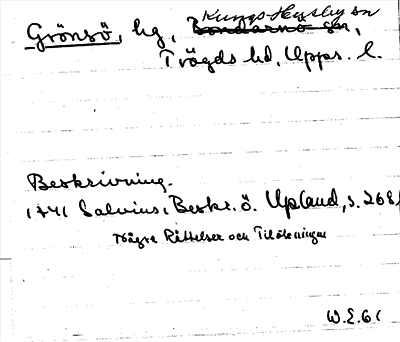 Grönsö, hg, Kungs Husby sn
Bondarnö sn,
Trögds hd, Upps. l.
Beskrivning.
1741 Salvius, Beskr. ö. Upland, s. 268,
Några Rättelser och Tilökningar
W.E.61